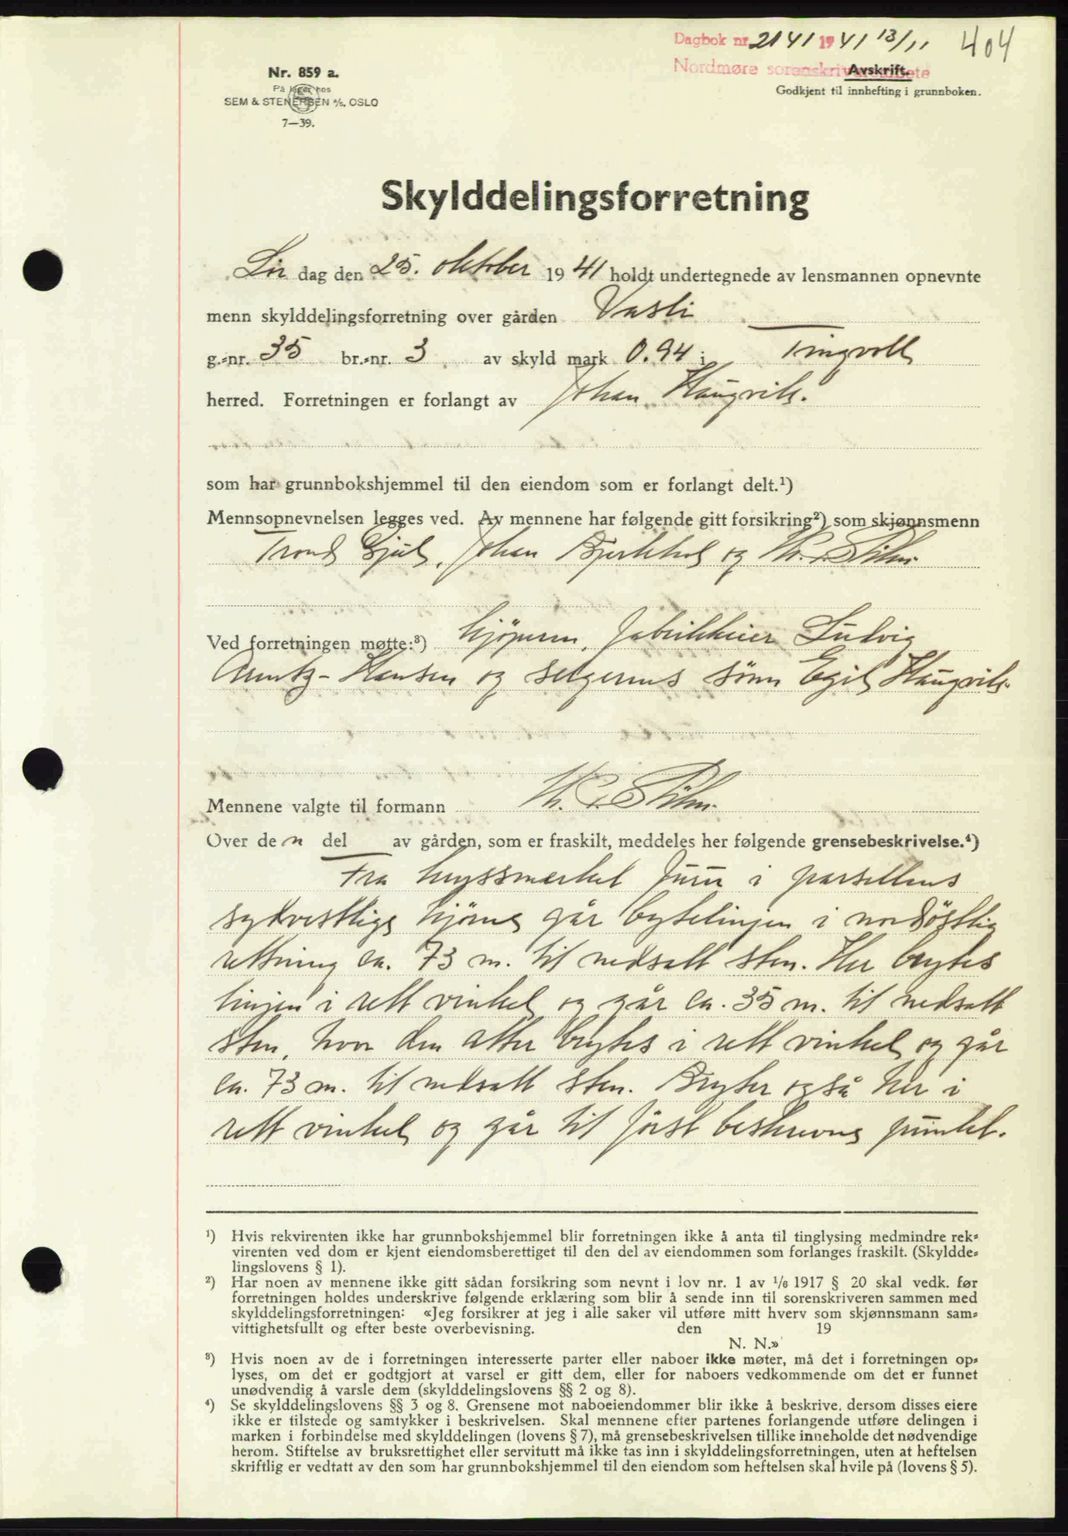 Dagbok nr. 2141 1941 13/11 404
Nordmøre sorenskriverembete
Avskrift.
Godkjent til innhefting i grunnboken.
Nr. 859 a.
På lager hos
SEM & STENERSEN A/S, OSLO
7—39.
Skylddelingsforretning
Lør dag den 25. oktober 1941 holdt undertegnede av lensmannen opnevnte
menn skylddelingsforretning over gården Vasli
g.-nr. 35 br.-nr. 3 av skyld mark 0.94 i Tingvoll
herred. Forretningen er forlangt av Johan Haugvik.
som har grunnbokshjemmel til den eiendom som er forlangt delt.¹)
Mennsopnevnelsen legges ved. Av mennene har følgende gitt forsikring²) som skjønnsmenn
Trond Gjul, Johan Bjerkhol og
Ved forretningen møtte:³) kjøperen, fabrikkeier Ludvig
Arentz-Hansen og selgerens sønn Egil Haugvik.
Mennene valgte til formann
Over den del av gården, som er fraskilt, meddeles her følgende grensebeskrivelse.⁴)
Fra kryssmerket i parsellens
sydvestlige hjørne går bytelinjen i nordøstlig
retning ca. 73 m. til nedsatt sten. Her brytes
linjen i rett vinkel og går ca. 35 m. til nedsatt
sten, hvor den atter brytes i rett vinkel og går
ca. 73 m. til nedsatt sten. Bryter også her i
rett vinkel og går til først beskrevne punkt.
¹) Hvis rekvirenten ikke har grunnbokshjemmel blir forretningen ikke å anta til tinglysing medmindre rek-
virenten ved dom er kjent eiendomsberettiget til den del av eiendommen som forlanges fraskilt. (Skyldde-
lingslovens § 1).
²) Har noen av mennene ikke gitt sådan forsikring som nevnt i lov nr. 1 av 1/6 1917 § 20 skal vedk. før
forretningen holdes underskrive følgende erklæring som blir å sende inn til sorenskriveren sammen med
skylddelingsforretningen: «Jeg forsikrer at jeg i alle saker vil utføre mitt hverv som skjønnsmann sam-
vittighetsfullt og efter beste overbevisning. den 19
N. N.»
³) Hvis noen av de i forretningen interesserte parter eller naboer ikke møter, må det i forretningen op-
lyses, om det er godtgjort at varsel er gitt dem, eller for naboers vedkommende om det er funnet
unødvendig å varsle dem (skylddelingslovens §§ 2 og 8).
⁴) Se skylddelingslovens §§ 3 og 8. Grensene mot naboeiendommer blir ikke å beskrive, dersom disses eiere
ikke er tilstede og samtykker i beskrivelsen. Skal mennene efter partenes forlangende utføre delingen i
marken i forbindelse med skylddelingen (lovens § 7), må grensebeskrivelsen tillike inneholde det nødvendige
herom. Stiftelse av bruksrettighet eller servitutt må ikke tas inn i skylddelingsforretningen, uten at heftelsen
skriftlig er vedtatt av den som har grunnbokshjemmel til den eiendom som heftelsen skal hvile på (lovens § 5).